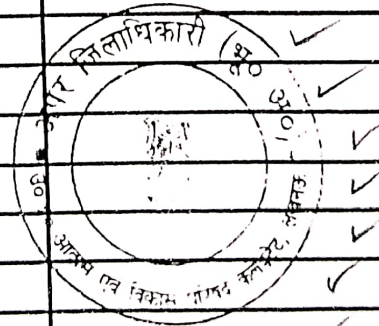 अपर जिलाधिकारी (भू० अ०)
आवास एवं विकास परिषद कलेक्ट्रेट, लखनऊ